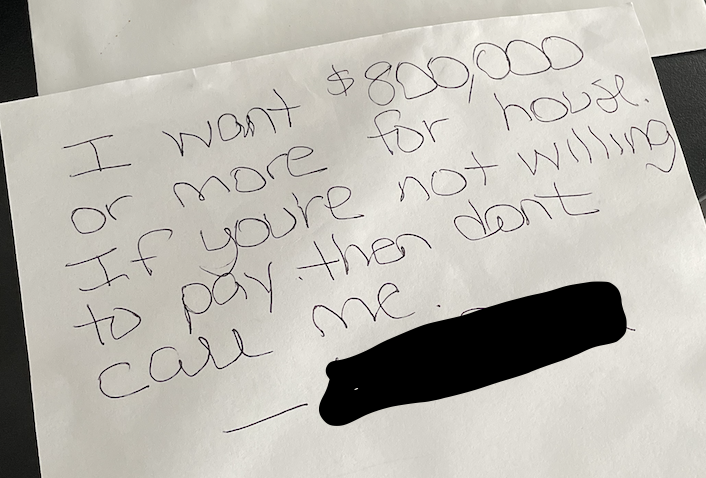 I want $800,000
or more for house.
If you're not willing
to pay. then dont
call me.